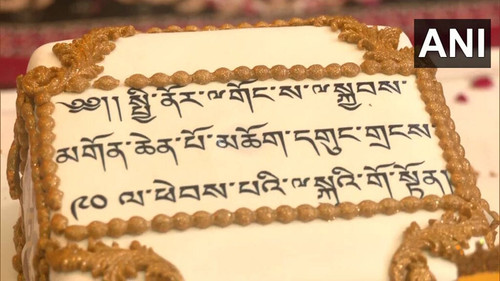 ༄༅། །སྤྱི་ནོར་༸གོང་ས་༸སྐྱབས་
མགོན་ཆེན་པོ་མཆོག་དགུང་གྲངས་
༩༠ ལ་ཕེབས་པའི་༸སྐུའི་གོ་སྟོན།
ANI